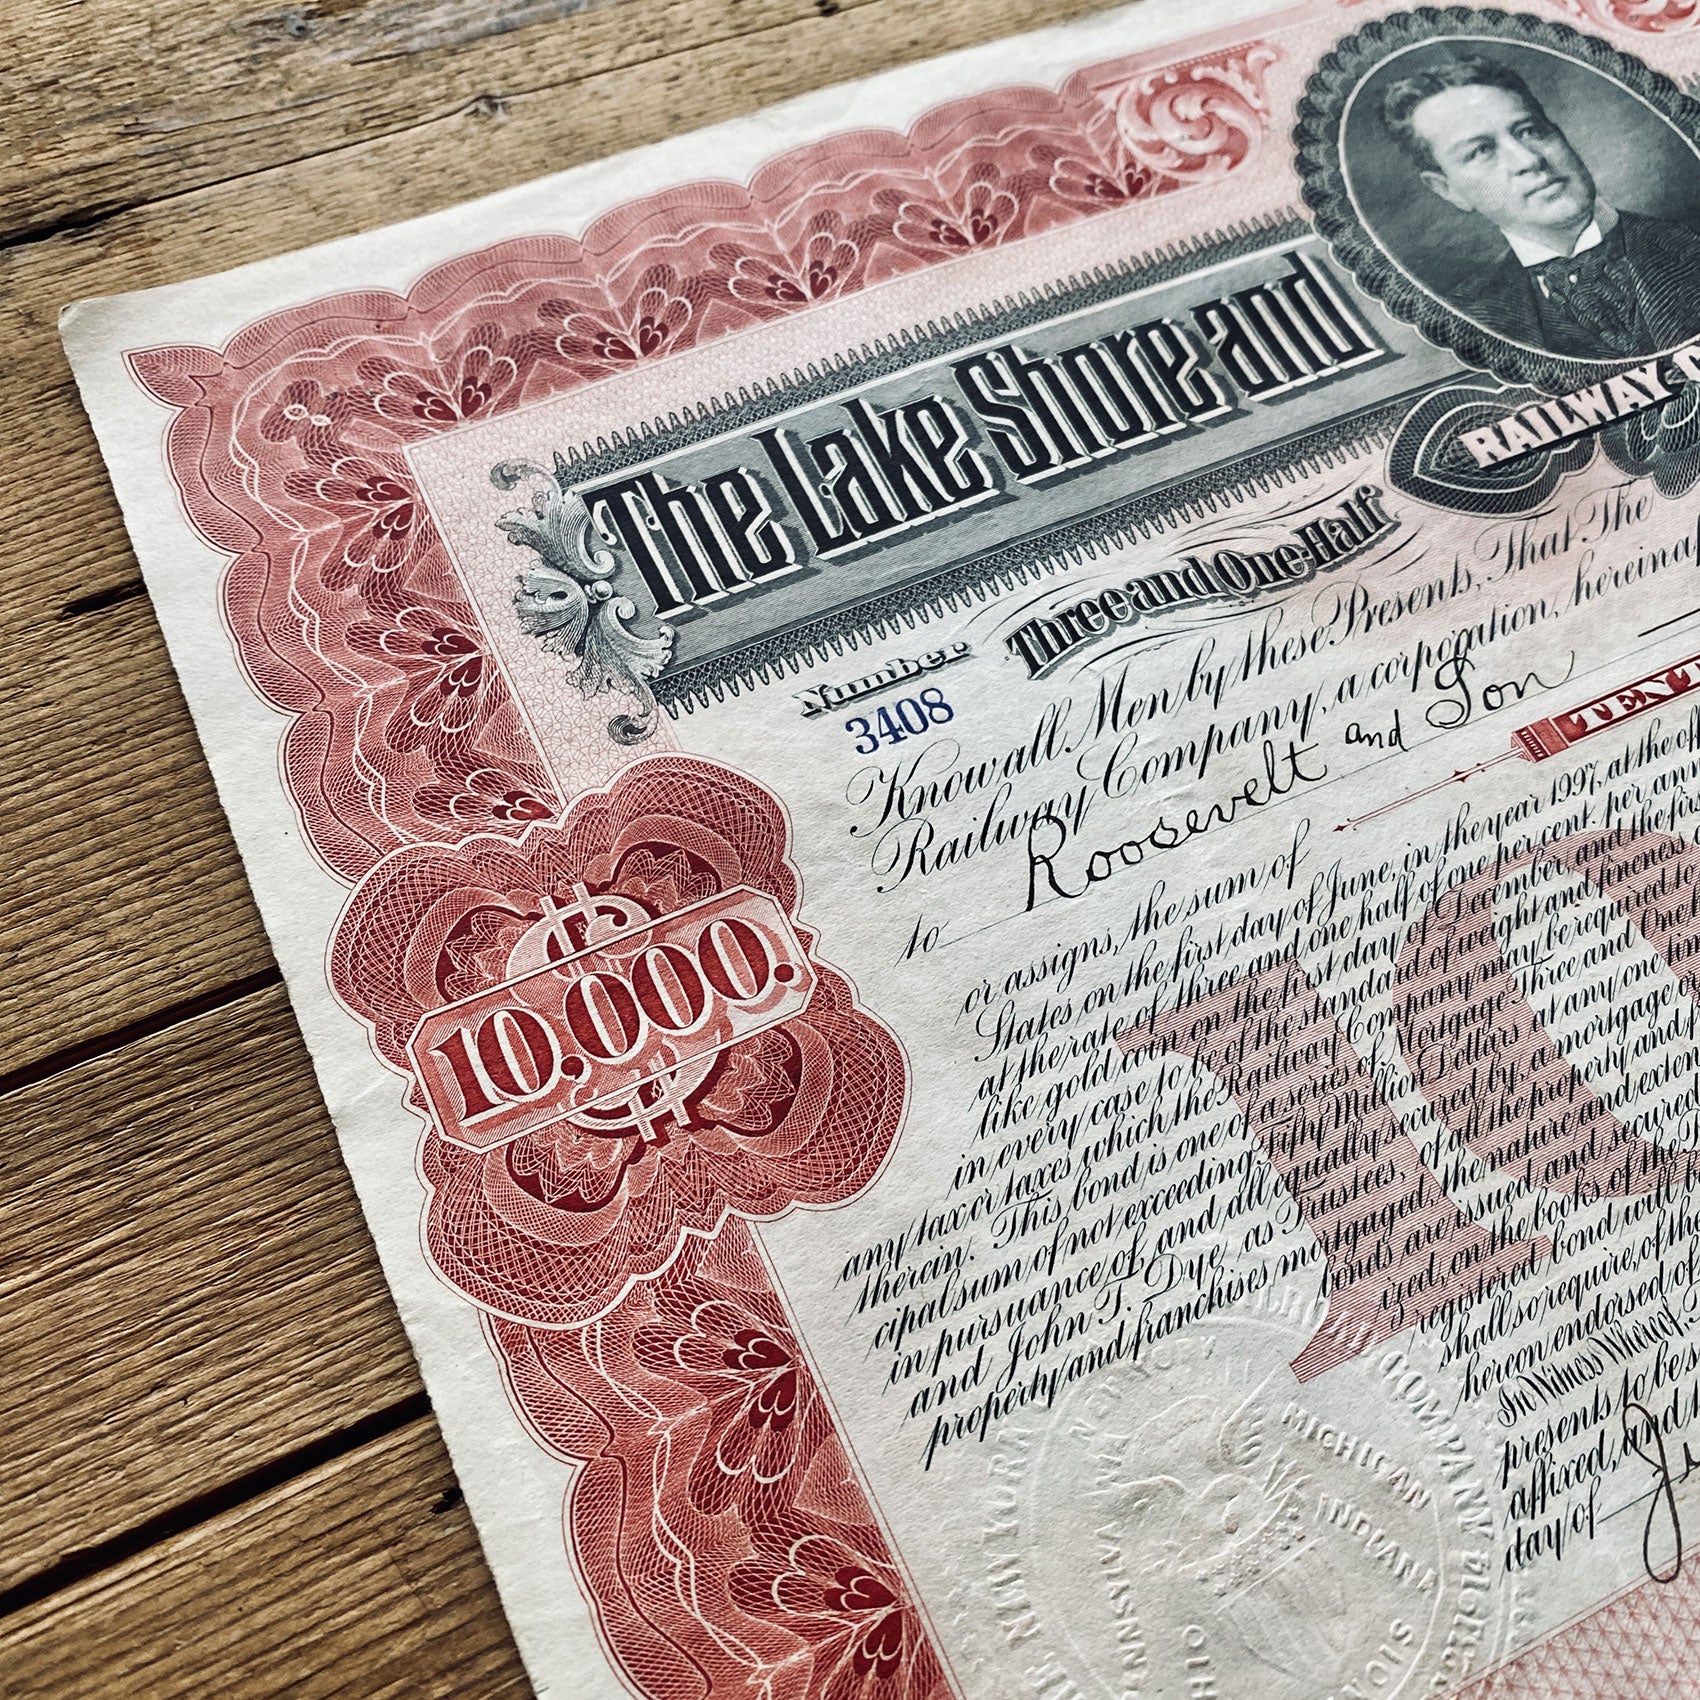 The Lake Shore and
RAILWAY
Three and One-Half
Number
3408
Know all Men by these Presents, That The
Railway Company, a corporation,
to Roosevelt and Son
or assigns, the sum of
TENT
States on the first day of June, in the year 1997, at the
at the rate of three and one half of one per cent. per
like gold coin on the first day of December, and the
in every case to be of the standard of weight and fineness
any tax or taxes which the Railway Company may be required to
therein. This bond is one of a series of Mortgage Three and One
cipal sum of not exceeding Fifty Million Dollars at any one
in pursuance of, and all equally secured by, a mortgage
and John T. Dye as Trustees, of all the property and
property and franchises mortgaged, the nature and
bonds are issued and secured
ized, on the books of the
registered bond will
shall so require, of the
hereon endorsed
In Witness Whereof,
presents to be
affixed, and
day of
10
$
10,000.
MICHIGAN
INDIANA
COMPANY